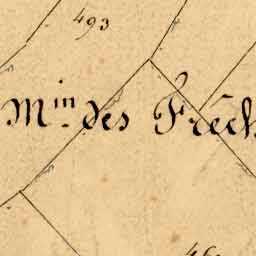 493
Min des Frêch